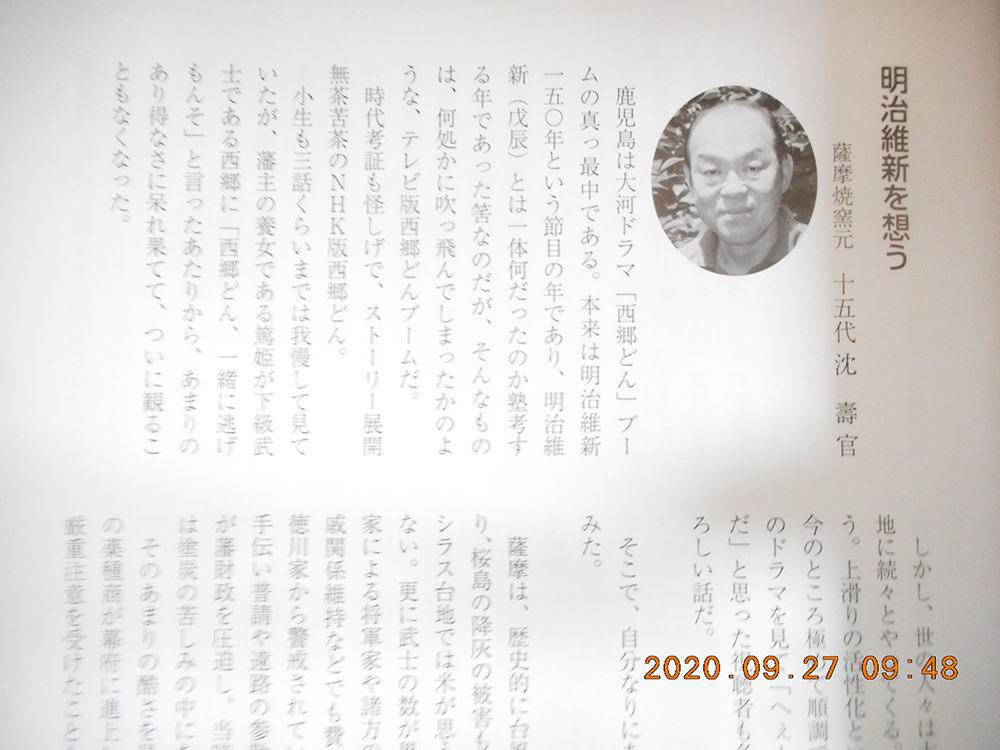 明治維新を想う
薩摩焼窯元 十五代 沈 壽官
鹿児島は大河ドラマ「西郷どん」ブー
ムの真っ最中である。本来は明治維新
一五〇年という節目の年であり、明治維
新（戊辰）とは一体何だったのか塾考す
る年であった筈なのだが、そんなもの
は、何処かに吹っ飛んでしまったかのよ
うな、テレビ版西郷どんブームだ。
時代考証も怪しげで、ストーリー展開
無茶苦茶のNHK版西郷どん。
小生も三話くらいまでは我慢して見て
いたが、藩主の養女である篤姫が下級武
士である西郷に「西郷どん、一緒に逃げ
もんそ」と言ったあたりから、あまりの
あり得なさに呆れ果てて、ついに観るこ
ともなくなった。
しかし、世の人々は
地に続々とやってくる
う。上滑りの活性化と
今のところ極めて順調
のドラマを見て「へぇ
だ」と思った視聴者も
ろしい話だ。
そこで、自分なりに
みた。
薩摩は、歴史的に台風
り、桜島の降灰の被害も
シラス台地では米が思う
ない。更に武士の数が異
家による将軍家や諸方の
戚関係維持などでも費
徳川家から警戒されてい
手伝い普請や遠路の参勤
が藩財政を圧迫し、当時
は塗炭の苦しみの中にあ
そのあまりの酷さを
の薬種商が幕府に進上
厳重注意を受けたこと
2020.09.27 09:48